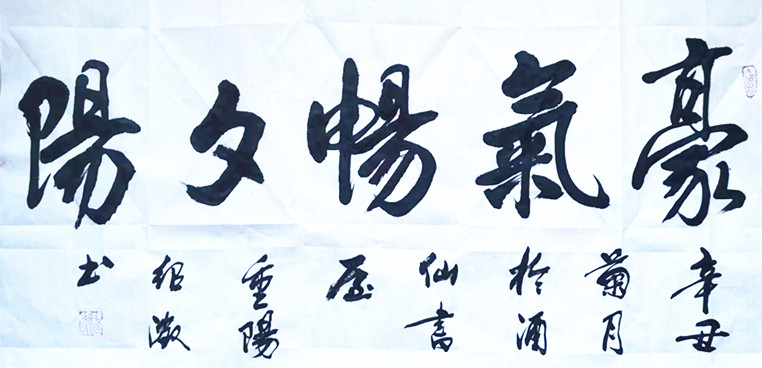 豪氣暢夕陽
辛丑
菊月
於酒
仙書
屋
重陽
紹
书